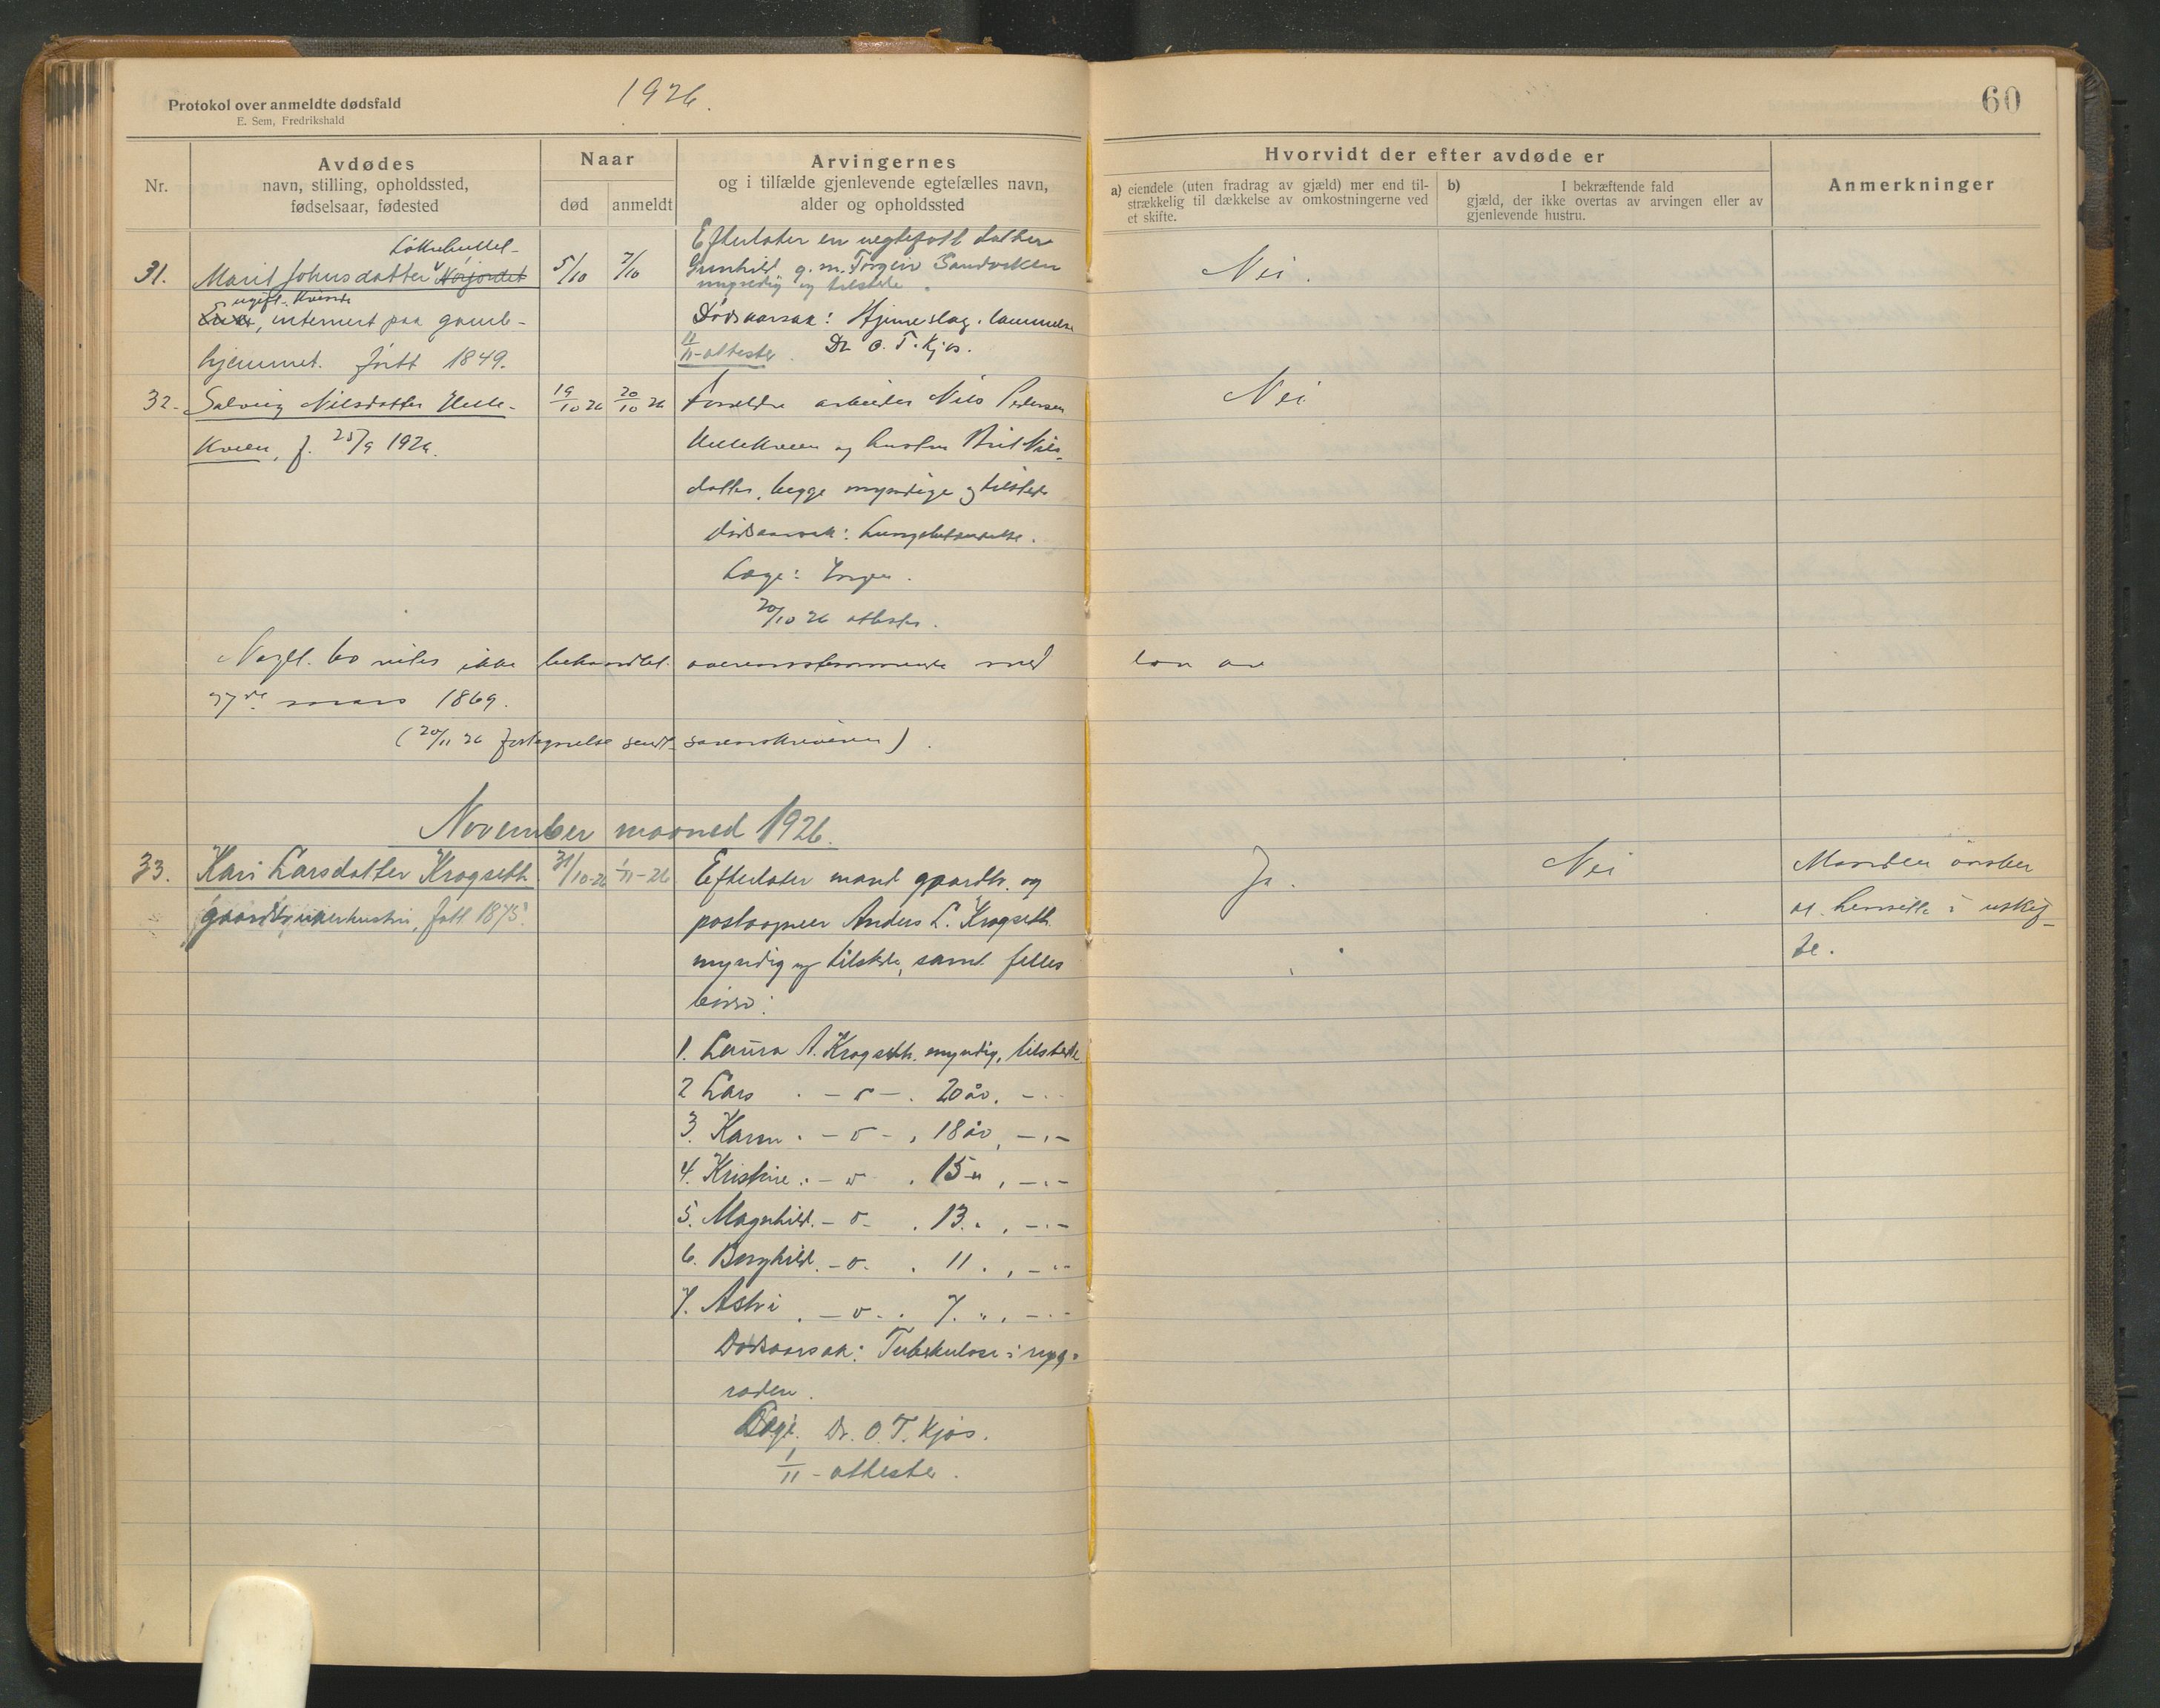 Protokol over anmeldte dødsfald
E. Sem, Fredrikshald
1926.
60
Nr.
Avdødes
navn, stilling, opholdssted,
fødselsaar, fødested
Naar
død
anmeldt
Arvingernes
og i tilfælde gjenlevende egtefælles navn,
alder og opholdssted
Hvorvidt der efter avdøde er
a) eiendele (uten fradrag av gjæld) mer end til-
strækkelig til dækkelse av omkostningerne ved
et skifte.
b) I bekræftende fald
gjæld, der ikke overtas av arvingen eller av
gjenlevende hustru.
Anmerkninger
31. Marit Johnsdatter
5/10 7/10
ugift. kvinde
internert paa gamle-
hjemmet. født 1849.
Efterlater en uegtefødt datter
Gunhild g. m. Torgeir Sandviken
myndig og tilstede.
Dødsaarsak: Hjerneslag. lammelse
11-attester. Dr O. T. Kjos.
Nei.
32. Solveig Nilsdatter Helle-
kveen, f. 25/9 1926.
19/10 26 20/10 26
Forældre arbeider Nils Pedersen
Hellekveen og hustru Brit Nils-
datter, begge myndige og tilstede
Dødsaarsak: Lungebetændelse.
Læge: Ingen.
20/10 26 attester.
Nei
Nogt. bo vites ikke behandlet overensstemmende med lov av
27de mars 1869.
(20/11 26 fortegnelse sendt sorenskriveren).
November maaned 1926.
33. Kari Larsdatter Krogseth
gaardbrukerhustru, født 1875.
31/10-26 1/11-26
Efterlater mand gaardbr. og
postaapner Anders L. Krogseth
myndig og tilstede, samt felles
børn:
1. Laura A. Krogseth. myndig, tilstede
2 Lars . - o - . 20 år. - . -
3. Karen . - o - , 18 år, - . -
4. Kristine . - o - . 15 - " , - . -
5. Magnhild. - o - . 13. " , - . -
6. Borghild. - o - . 11 . , - . -
7. Astri . - o - . 7. " , - . -
Dødsaarsak: Tuberkulose i ryg-
raden.
Læge. Dr. O. T. Kjos.
1/11 - attester.
Ja.
Nei
Manden ønsker
at hensitte i uskif-
te.